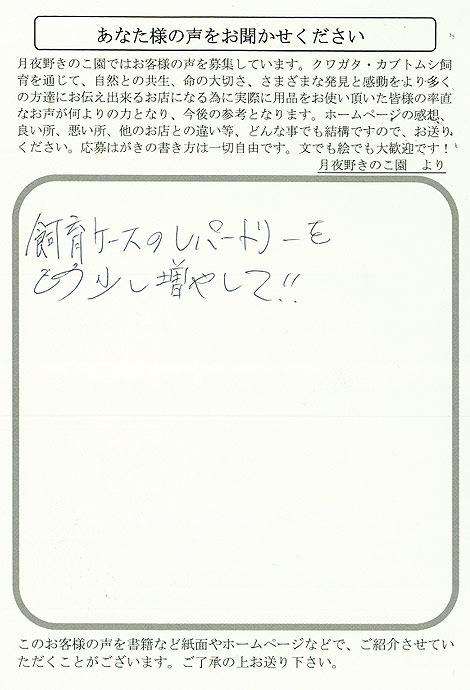 あなた様の声をお聞かせください
月夜野きのこ園ではお客様の声を募集しています。クワガタ・カブトムシ飼
育を通じて、自然との共生、命の大切さ、さまざまな発見と感動をより多く
の方達にお伝え出来るお店になる為に実際に用品をお使い頂いた皆様の率直
なお声が何よりの力となり、今後の参考となります。ホームページの感想、
良い所、悪い所、他のお店との違い等、どんな事でも結構ですので、お送り
ください。応募はがきの書き方は一切自由です。文でも絵でも大歓迎です！
月夜野きのこ園　より
飼育ケースのレパートリーを
もう少し増やして!!
このお客様の声を書籍など紙面やホームページなどで、ご紹介させてい
ただくことがございます。ご了承の上お送り下さい。